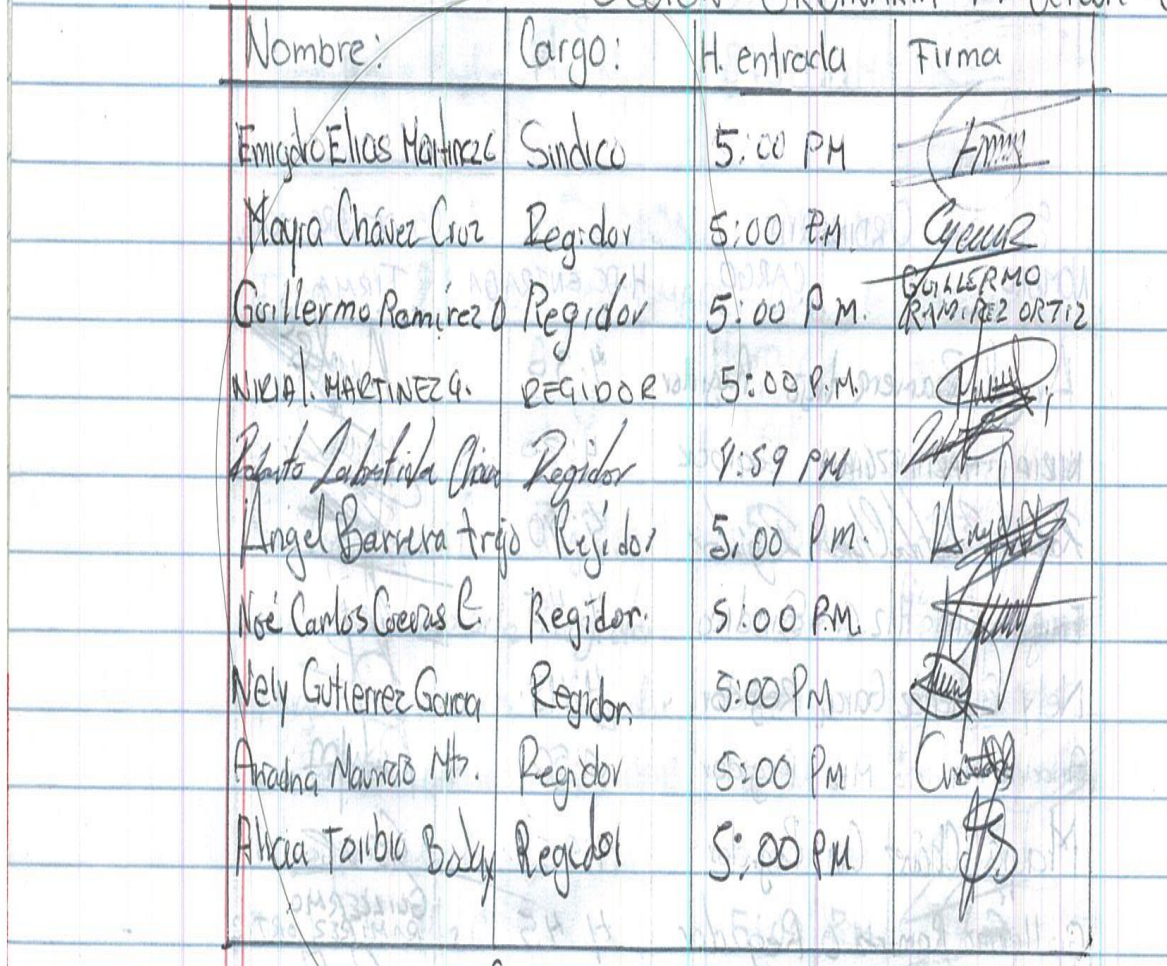 Nombre: Cargo: H. entrada Firma
Emigdio Elias Martinez Sindico 5:00 PM
Mayra Chávez Cruz Regidor 5:00 P.M
Guillermo Ramírez O Regidor 5:00 P.M. GUILLERMO
RAMIREZ ORTIZ
NIRIA I. MARTINEZ G. REGIDOR 5:00 P.M.
Roberto Regidor 4:59 PM
Angel Barrera trejo Rejidor 5:00 P.m.
Noé Carlos Cuevas C. Regidor. 5:00 P.M.
Nely Gutierrez Garcia Regidor. 5:00 PM
Ariadna Mauricio Mtz. Regidor 5:00 PM
Alicia Toribio Regidor 5:00 PM